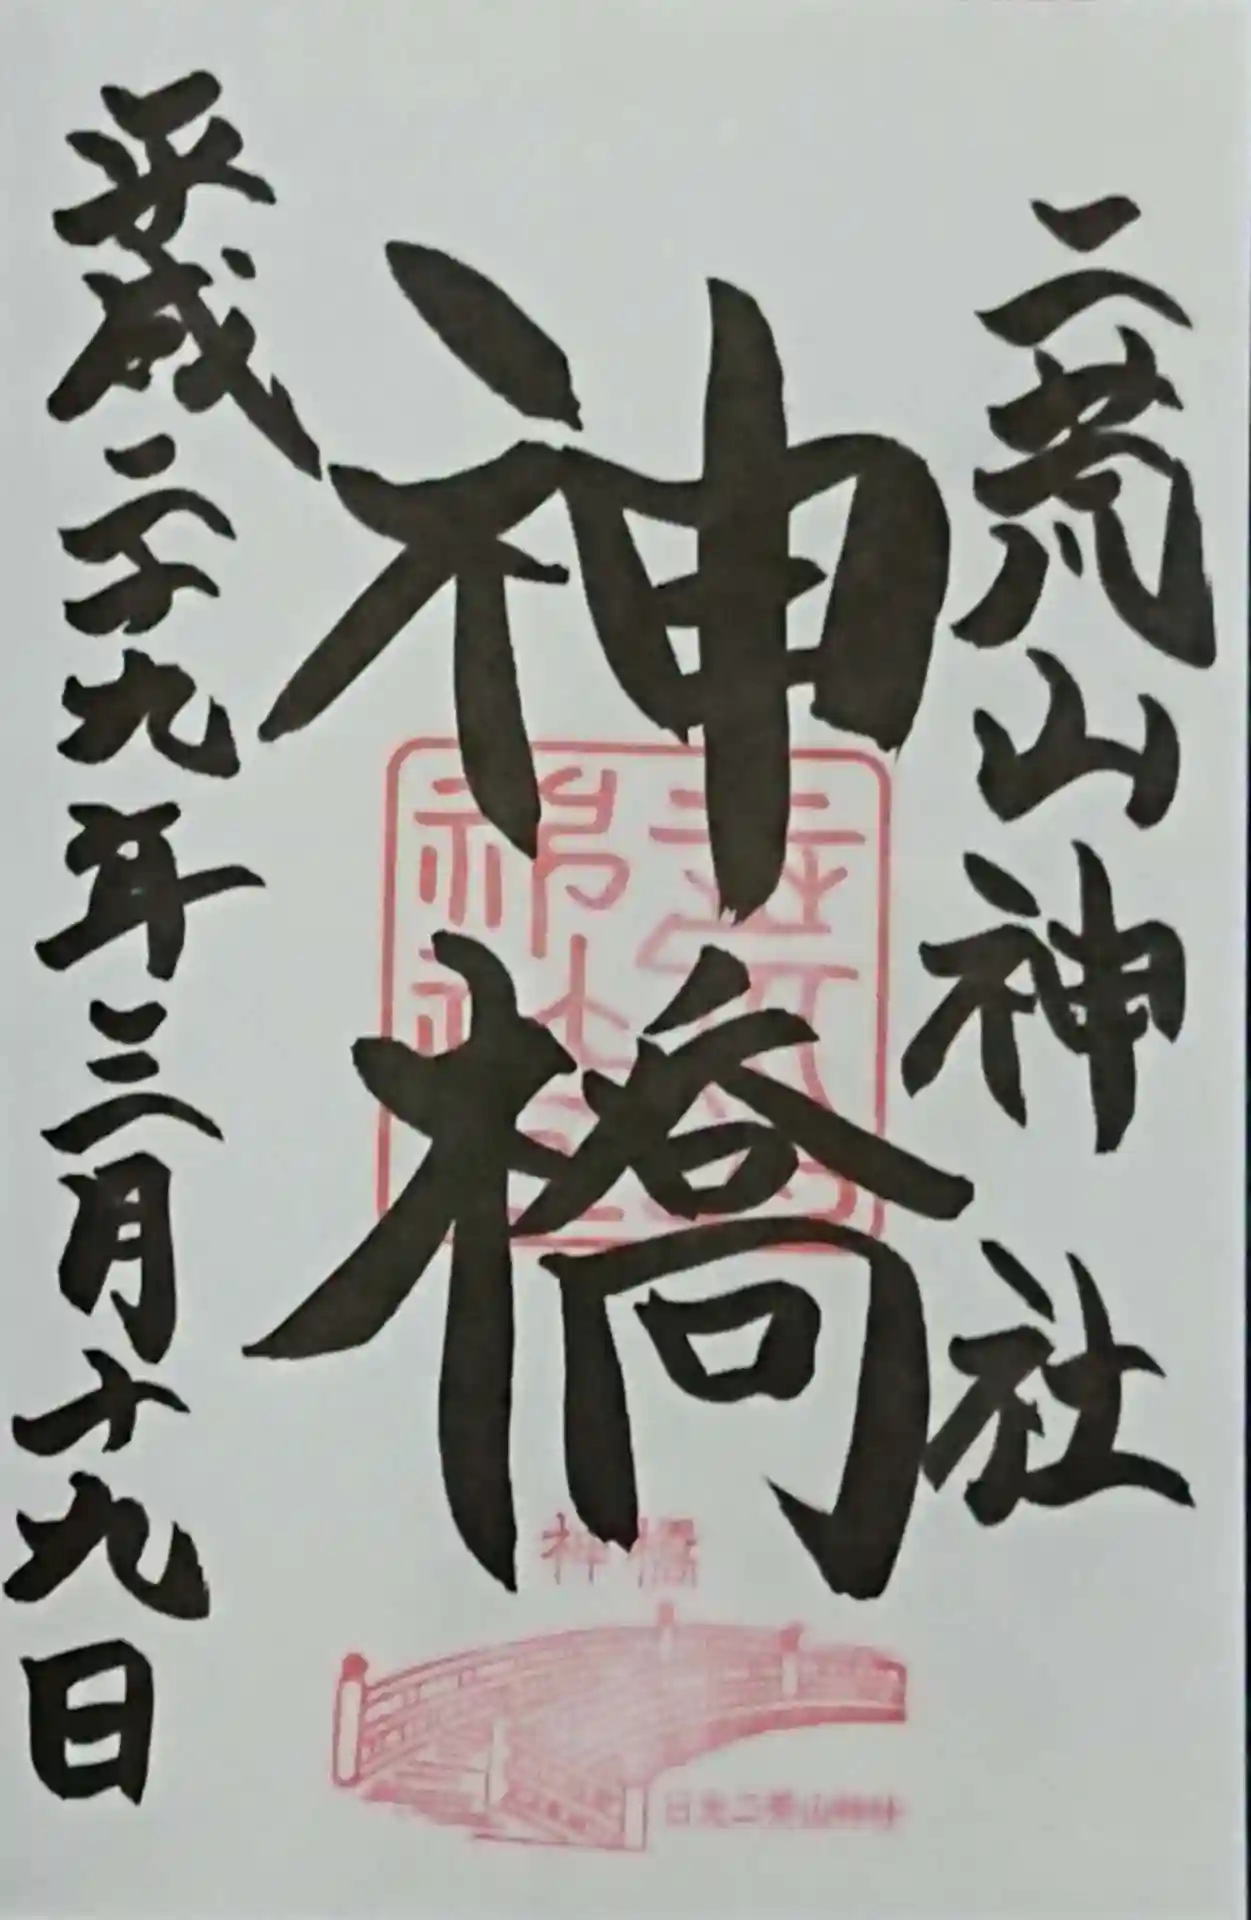 二荒山神社
神橋
平成二十九年三月十九日
神橋
日光二荒山神社